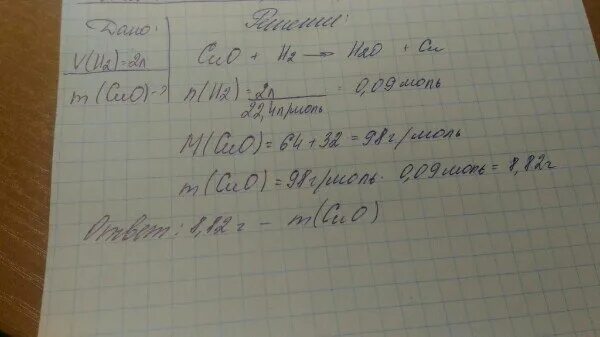 Дано:
Решение:
V(H₂)=2л
CuO + H₂ → H₂O + Cu
m(CuO)-?
n(H₂) = 2л / 22,4л/моль = 0,09моль
M(CuO) = 64+32 = 98г/моль
m(CuO) = 98г/моль · 0,09моль = 8,82г
Ответ: 8,82г – m(CuO)